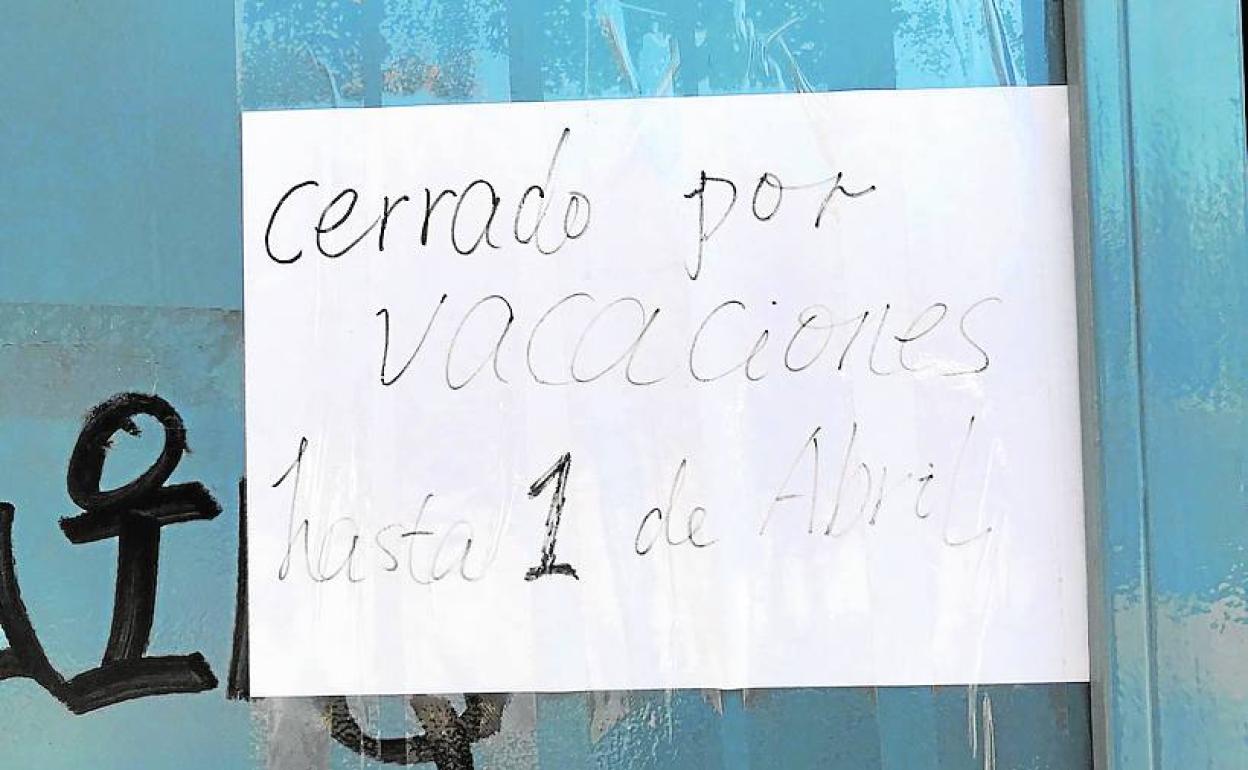 cerrado por
vacaciones
hasta 1 de Abril